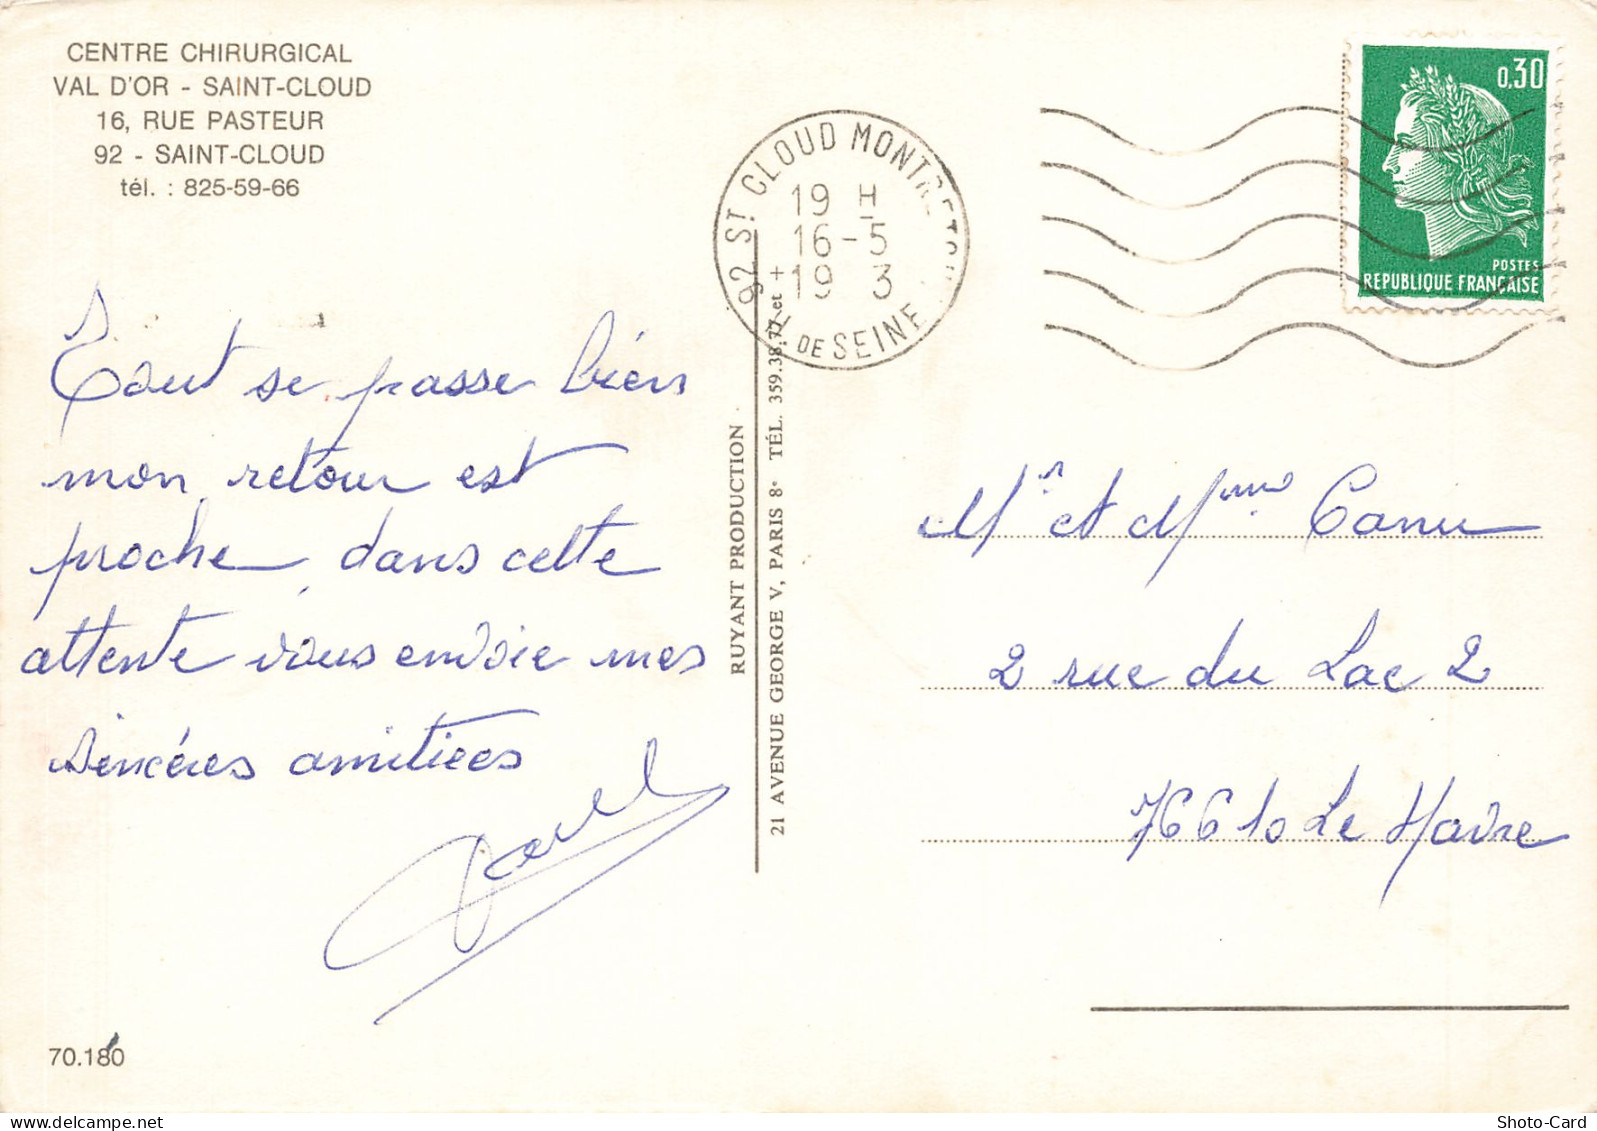 CENTRE CHIRURGICAL
VAL D'OR - SAINT-CLOUD
16, RUE PASTEUR
92 - SAINT-CLOUD
tél. : 825-59-66
Tout se passe bien
mon retour est
proche, dans cette
attente vous envoie mes
sincéres amitiées
70.180
RUYANT PRODUCTION
21 AVENUE GEORGE V, PARIS 8e TÉL. 359.38.77 et +
92 ST CLOUD MONTRETOUT
19 H
16-5
19 3
DE SEINE
0,30
POSTES
REPUBLIQUE FRANÇAISE
Mr et Mme Canu
2 rue du Lac 2
76610 Le Havre
Shoto-Card